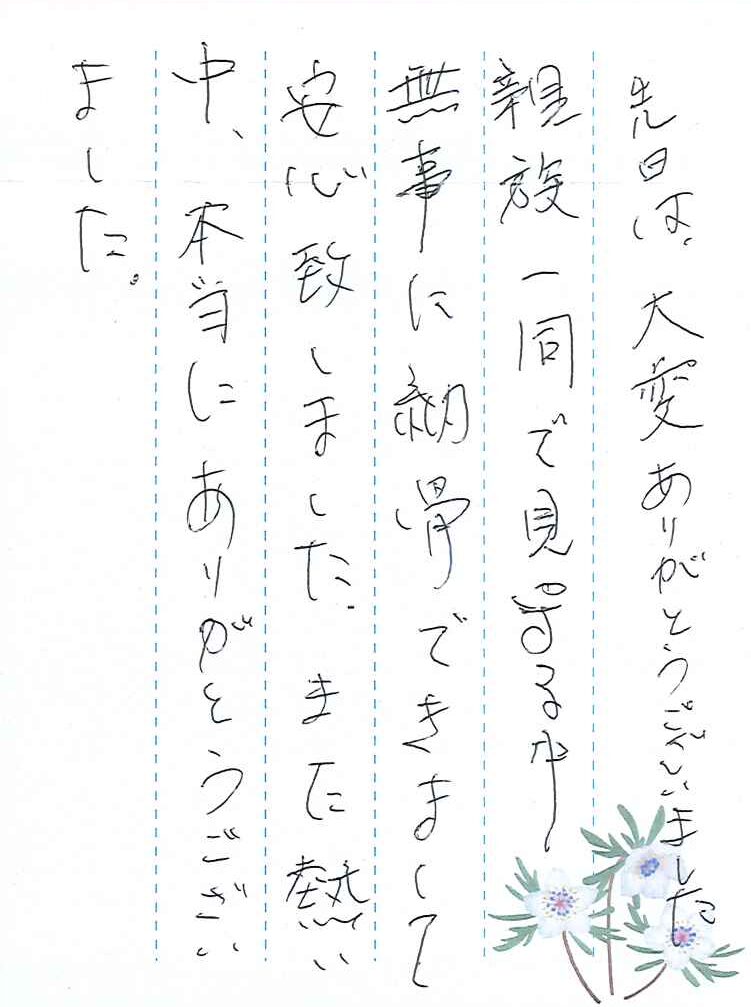 先日は、大変ありがとうございました
親族一同で見守る中、
無事に納骨できまして
安心致しました。また熱い
中、本当にありがとうござい
ました。